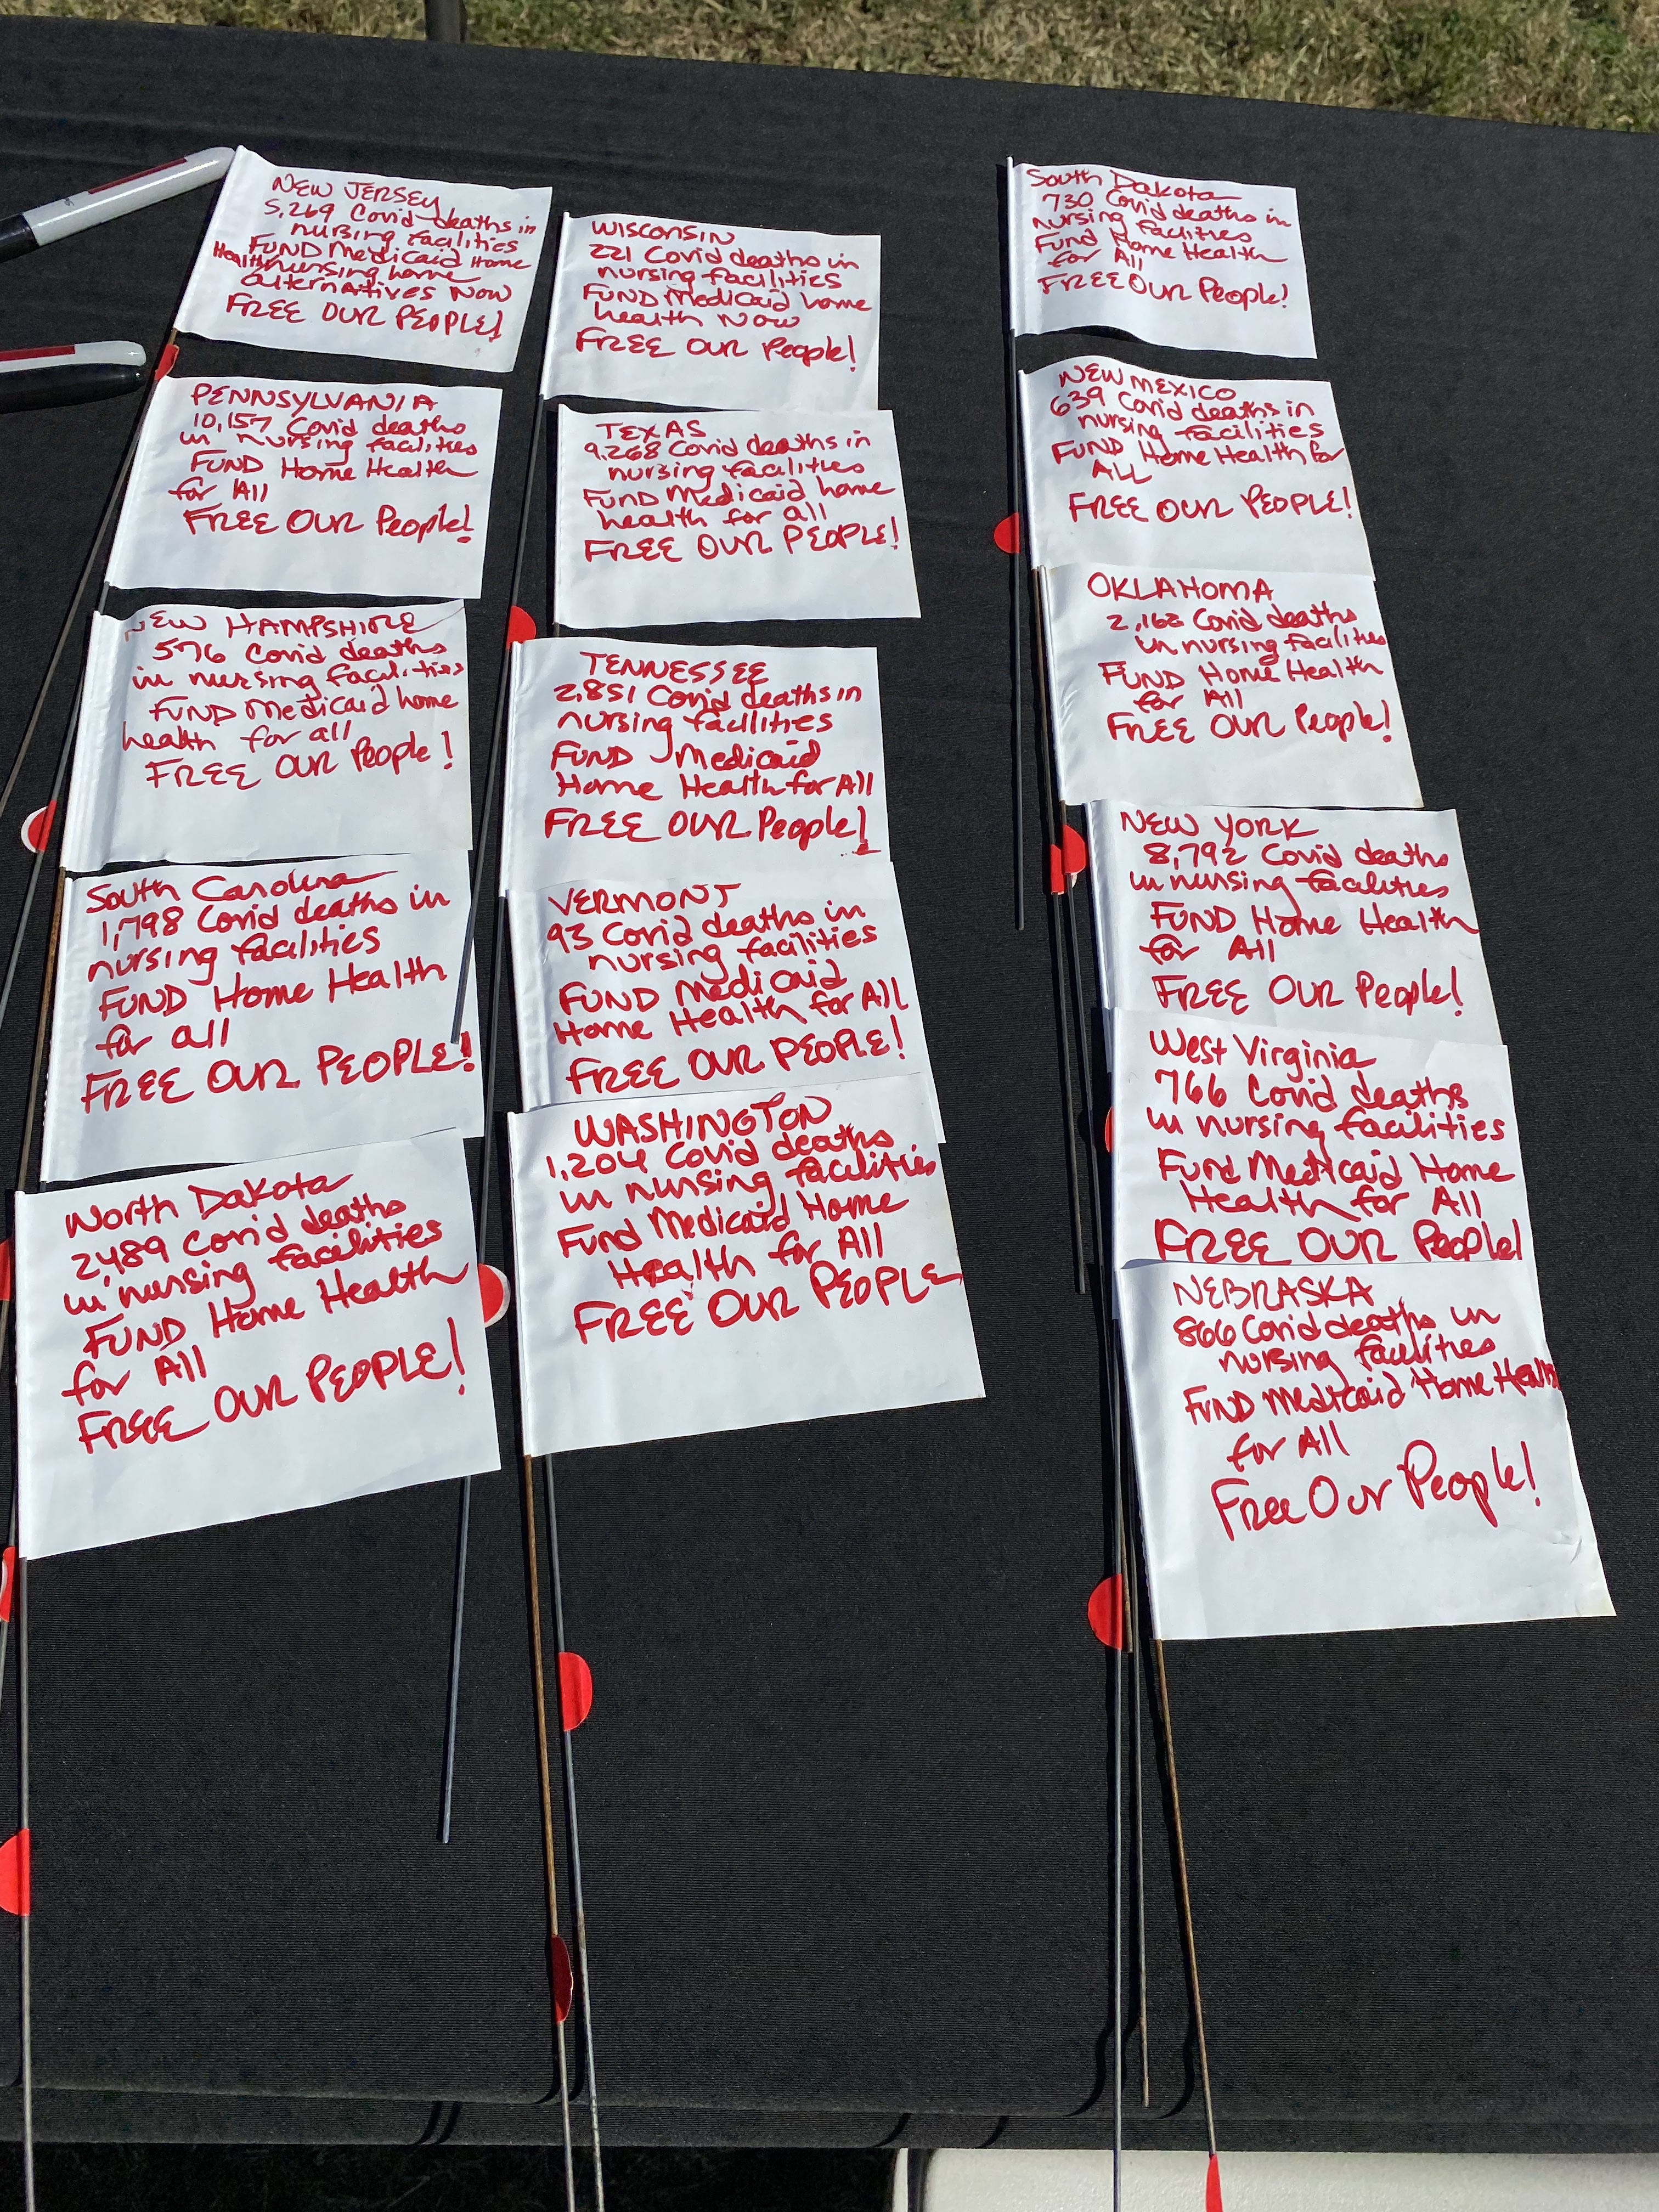 NEW JERSEY
5,269 Covid deaths in
nursing facilities
FUND Medicaid Home
Health/nursing home
alternatives NOW
FREE OUR PEOPLE!
PENNSYLVANIA
10,157 Covid deaths
in nursing facilities
FUND Home Health
for All
FREE OUR People!
NEW HAMPSHIRE
576 Covid deaths
in nursing facilities
FUND Medicaid home
health for all
FREE OUR People!
South Carolina
1,798 Covid deaths in
nursing facilities
FUND Home Health
for all
FREE OUR PEOPLE!
North Dakota
2,489 Covid deaths
in nursing facilities
FUND Home Health
for All
FREE OUR PEOPLE!
WISCONSIN
221 Covid deaths in
nursing facilities
FUND Medicaid home
health NOW
FREE OUR People!
TEXAS
9,268 Covid deaths in
nursing facilities
FUND Medicaid home
health for all
FREE OUR PEOPLE!
TENNESSEE
2,851 Covid deaths in
nursing facilities
FUND Medicaid
Home Health for All
FREE OUR People!
VERMONT
93 Covid deaths in
nursing facilities
FUND Medicaid
Home Health for All
FREE OUR PEOPLE!
WASHINGTON
1,204 Covid deaths
in nursing facilities
Fund Medicaid Home
Health for All
FREE OUR PEOPLE
South Dakota
730 Covid deaths in
nursing facilities
Fund Home Health
for All
FREE OUR People!
NEW MEXICO
639 Covid deaths in
nursing facilities
FUND Home Health for
ALL
FREE OUR PEOPLE!
OKLAHOMA
2,162 Covid deaths
in nursing facilities
FUND Home Health
for All
FREE OUR People!
NEW YORK
8,792 Covid deaths
in nursing facilities
FUND Home Health
for All
FREE OUR People!
West Virginia
766 Covid deaths
in nursing facilities
Fund Medicaid Home
Health for All
FREE OUR People!
NEBRASKA
866 Covid deaths in
nursing facilities
FUND Medicaid Home Health
for All
Free Our People!